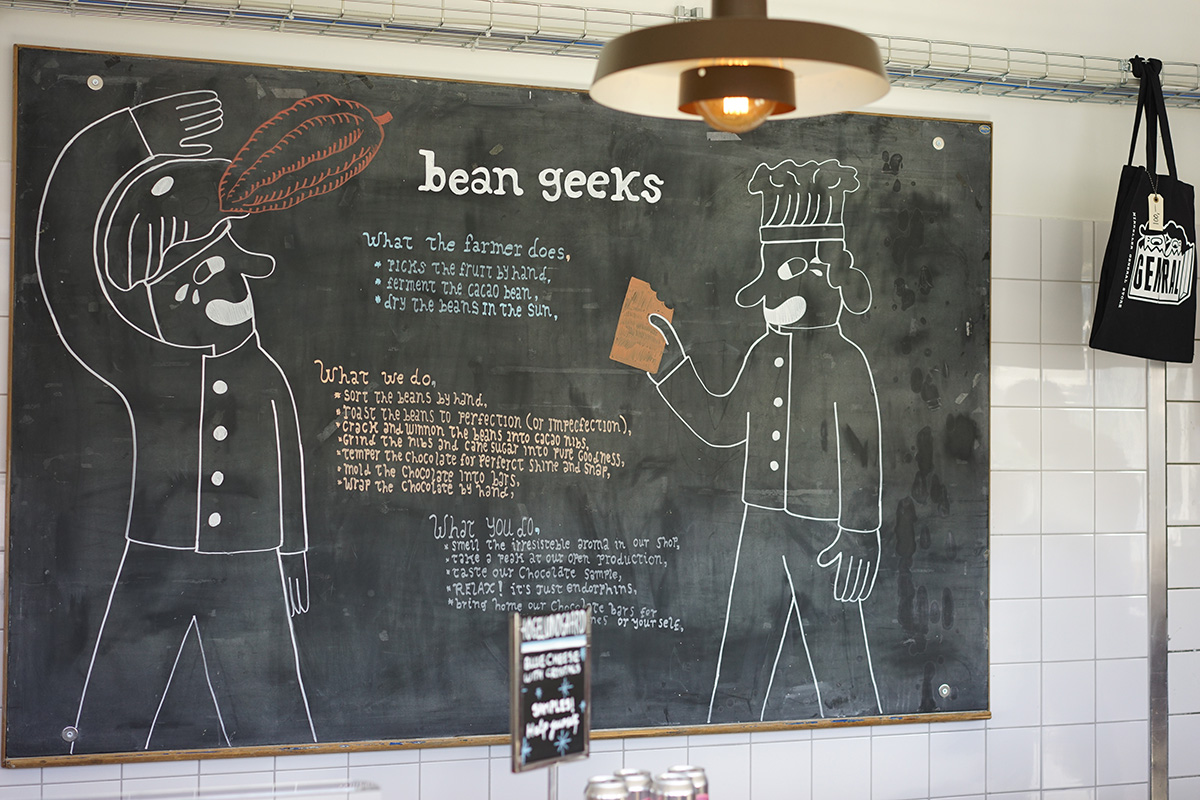 bean geeks
What the farmer does,
* PICKS THE FRUIT BY HAND,
* ferment the cacao bean,
* dry the beans in the sun,
What we do,
* SORT THE BEANS BY HAND,
* roast the beans to perfection (or impecfection),
* crack and winnon the beans into cacao nibs,
* Grind the nibs and cane sugar into pure Goodness,
* temper the chocolate for Perferct shine and snap,
* mold the chocolate into bars,
* wrap the chocolate by hand,
What you do,
* smell the irresisteble aroma in our shop,
* take a peak at our open production,
* taste our chocolate sample,
* RELAX! it's just endorphins,
* bring home our Chocolate bars for
or yourself,
BLUE CHEESE
WITH CRYSTALS
SAMPLES!
Help yourself
100,-
GENRAL